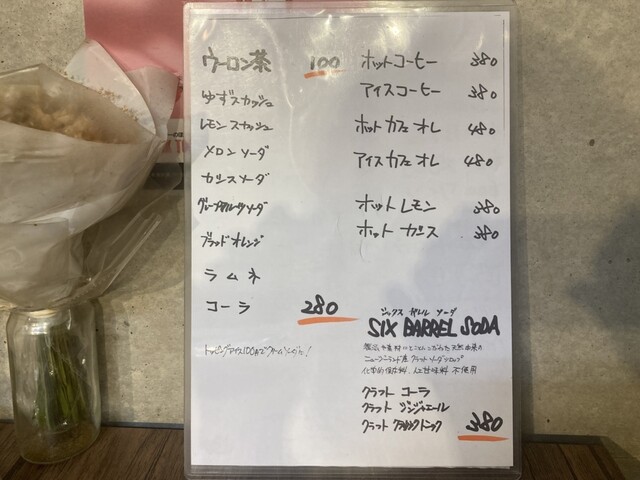 ウーロン茶 100
ゆずスカッシュ
レモンスカッシュ
メロンソーダ
カシスソーダ
グレープフルーツソーダ
ブラッドオレンジ
ラムネ
コーラ 280
トッピングアイス100円でクリームソーダに!
ホットコーヒー 380
アイスコーヒー 380
ホットカフェオレ 480
アイスカフェオレ 480
ホットレモン 380
ホットカシス 380
シックス バレル ソーダ
SIX BARREL SODA
製法や素材にとことんこだわった天然由来の
ニュージーランド産 クラフトソーダシロップ
化学的保存料、人工甘味料 不使用
クラフト コーラ
クラフト ジンジャエール
クラフト クラシックトニック 380